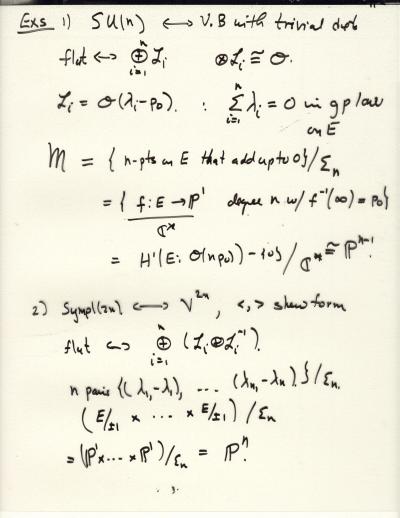 Exs 1) SU(n) ⟷ V.B with trivial det
flat ⟷ ⊕_{i=1}^{n} ℒ_i ⊗ℒ_i ≅ 𝒪.
ℒ_i = 𝒪(λ_i - p_0). : ∑_{i=1}^{n} λ_i = 0 in gp law
on E
M = { n-pts on E that add up to 0}/Σ_n
= { f: E → P^1 degree n w/ f^{-1}(∞) = p_0} / C^*
= H'(E; 𝒪(np_0)) - {0} / C^* ≅ P^{n-1}.
2) Sympl(2n) ⟷ V^{2n}, <,> skew form
flat ⟷ ⊕_{i=1}^{n} (ℒ_i ⊕ ℒ_i^{-1}).
n pairs {(λ_1, -λ_1), ... (λ_n, -λ_n).}/Σ_n.
(E/±1 × ... × E/±1) / Σ_n
= (P^1 × ... × P^1)/Σ_n = P^n.
. 3.